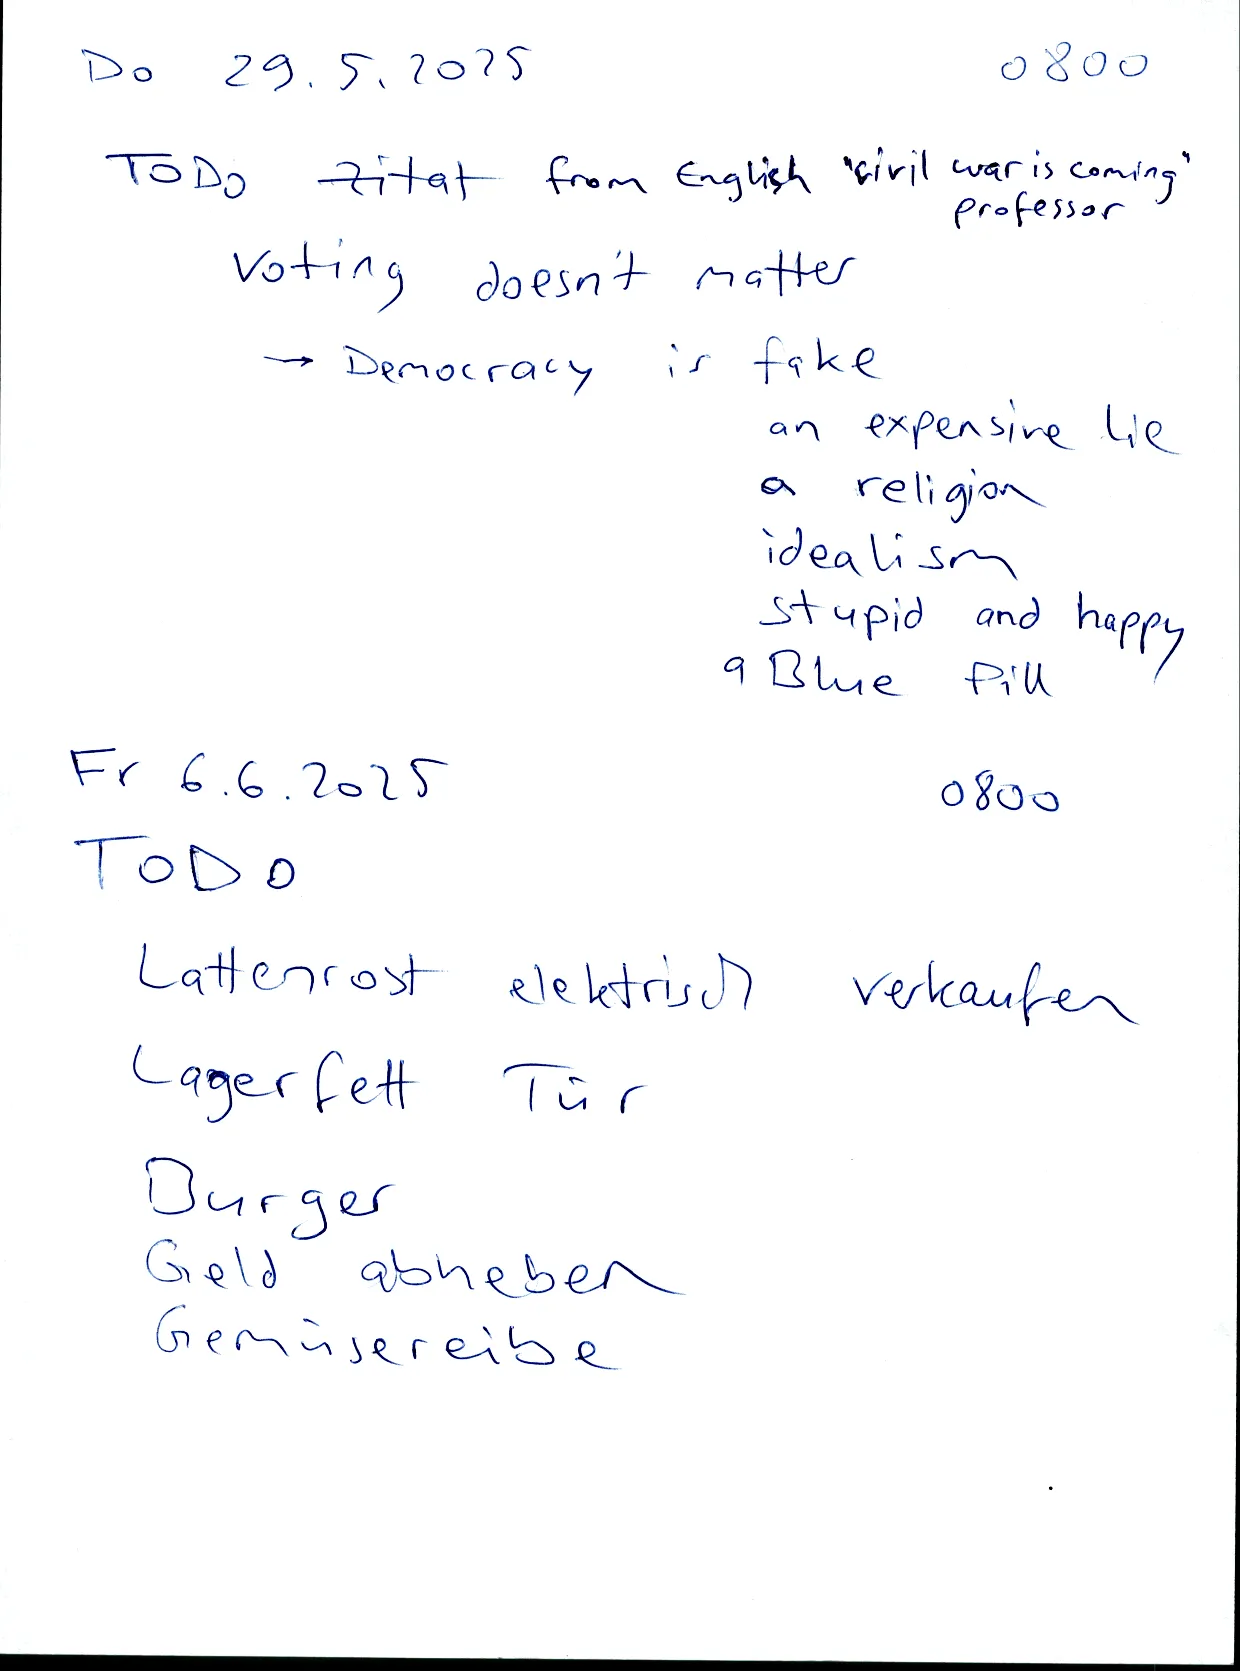 Do 29.5.2025 0800
TODo Zitat from English "civil war is coming"
professor
Voting doesn't matter
→ Democracy is fake
an expensive lie
a religion
idealism
stupid and happy
a Blue Pill
Fr 6.6.2025 0800
ToDo
Lattenrost elektrisch verkaufen
Lagerfett Tür
Burger
Geld abheben
Gemüsereibe